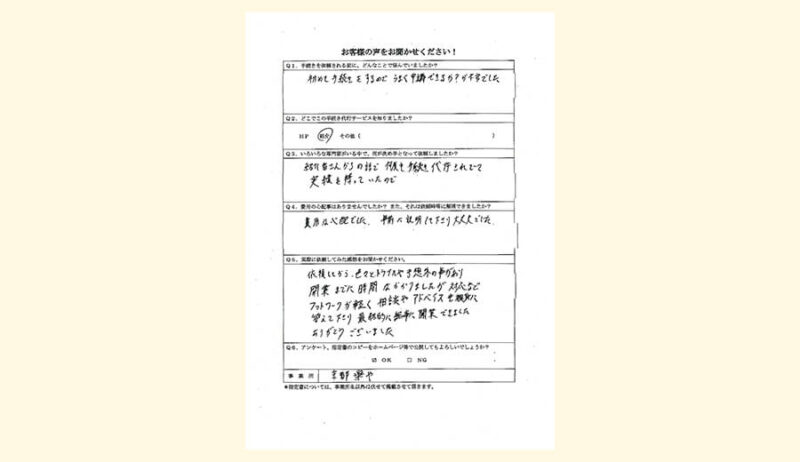 お客様の声をお聞かせください！
Q1．手続きを依頼される前に、どんなことで悩んでいましたか？
初めて手続きをするので うまく申請できるか？が不安でした
Q2．どこでこの手続き代行サービスを知りましたか？
HP 紹介 その他（ ）
Q3．いろいろな専門家がいる中で、何が決め手となって依頼しましたか？
紹介者さんからの話で 何度も手続きを代行されていて
実績を持っていたので
Q4．費用の心配事はありませんでしたか？また、それは依頼時等に解消できましたか？
費用は心配でした、事前に説明して下さり大丈夫でした。
Q5．実際に依頼してみた感想をお聞かせください。
依頼してから、色々とトラブルや予想外の事があり
開業までに時間はかかりましたが 対応など
フットワークが軽く 相談やアドバイスも親身に
答えて下さり 最終的に無事に開業できました
ありがとうございました
Q6．アンケート、指定書のコピーをホームページ等で公開してもよろしいでしょうか？
☑ OK □ NG
事業所 京都
＊指定書については、事業所名以外は伏せて掲載させて頂きます。